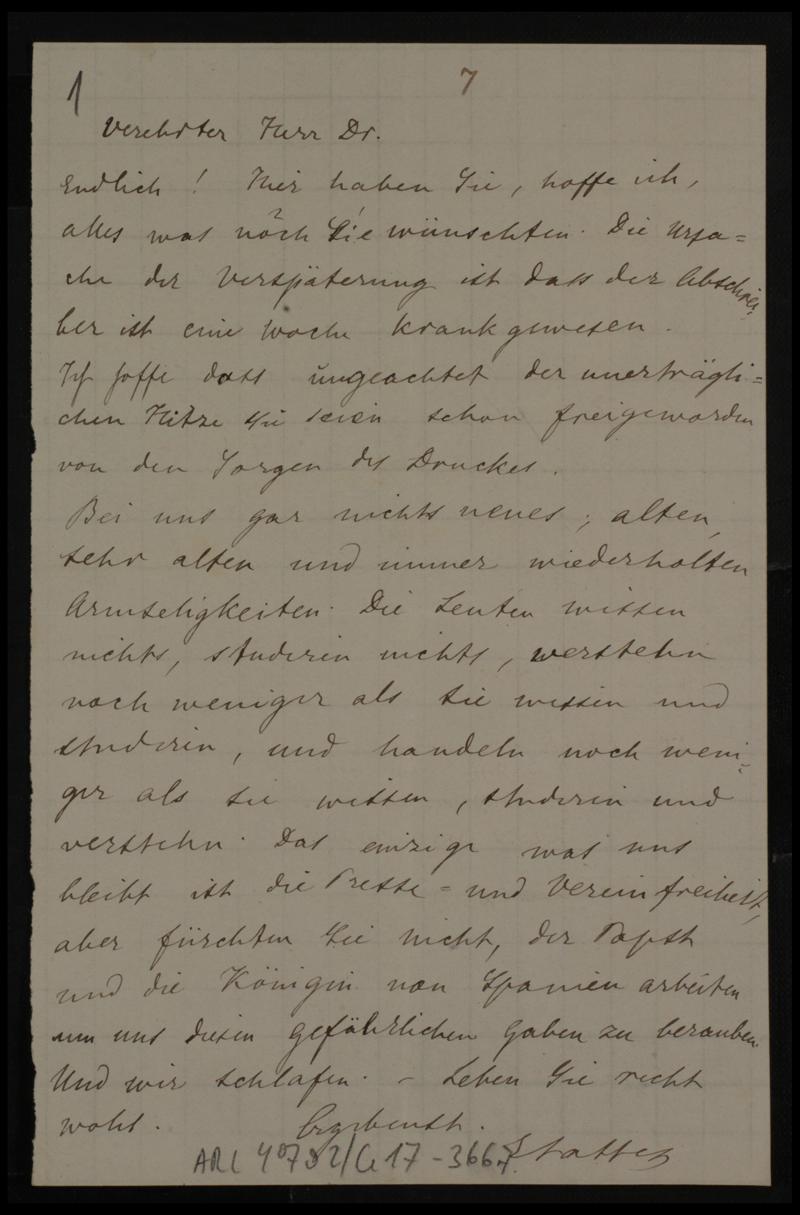 1
7
Verehrter Herr Dr.
Endlich! Hier haben Sie, hoffe ich,
alles was noch Sie wünschten. Die Ursa=
che der Verspäterung ist dass der Abschrei=
ber ist eine Woche krank gewesen.
Ich hoffe dass ungeachtet der unerträgli=
chen Hitze Sie seien schon freigeworden
von den Sorgen des Druckes.
Bei uns gar nichts neues; alten,
sehr alten und immer wiederholten
Armseligkeiten. Die Leuten wissen
nichts, studieren nichts, verstehn
noch weniger als sie wissen und
studieren, und handeln noch weni=
ger als sie wissen, studieren und
verstehn. Das einzige was uns
bleibt ist die Presse= und Vereinfreiheit,
aber fürchten Sie nicht, der Papst
und die Königin von Spanien arbeiten
um uns diesen gefährlichen Gaben zu berauben.
Und wir schlafen. – Leben Sie recht
wohl. Ergebenst.